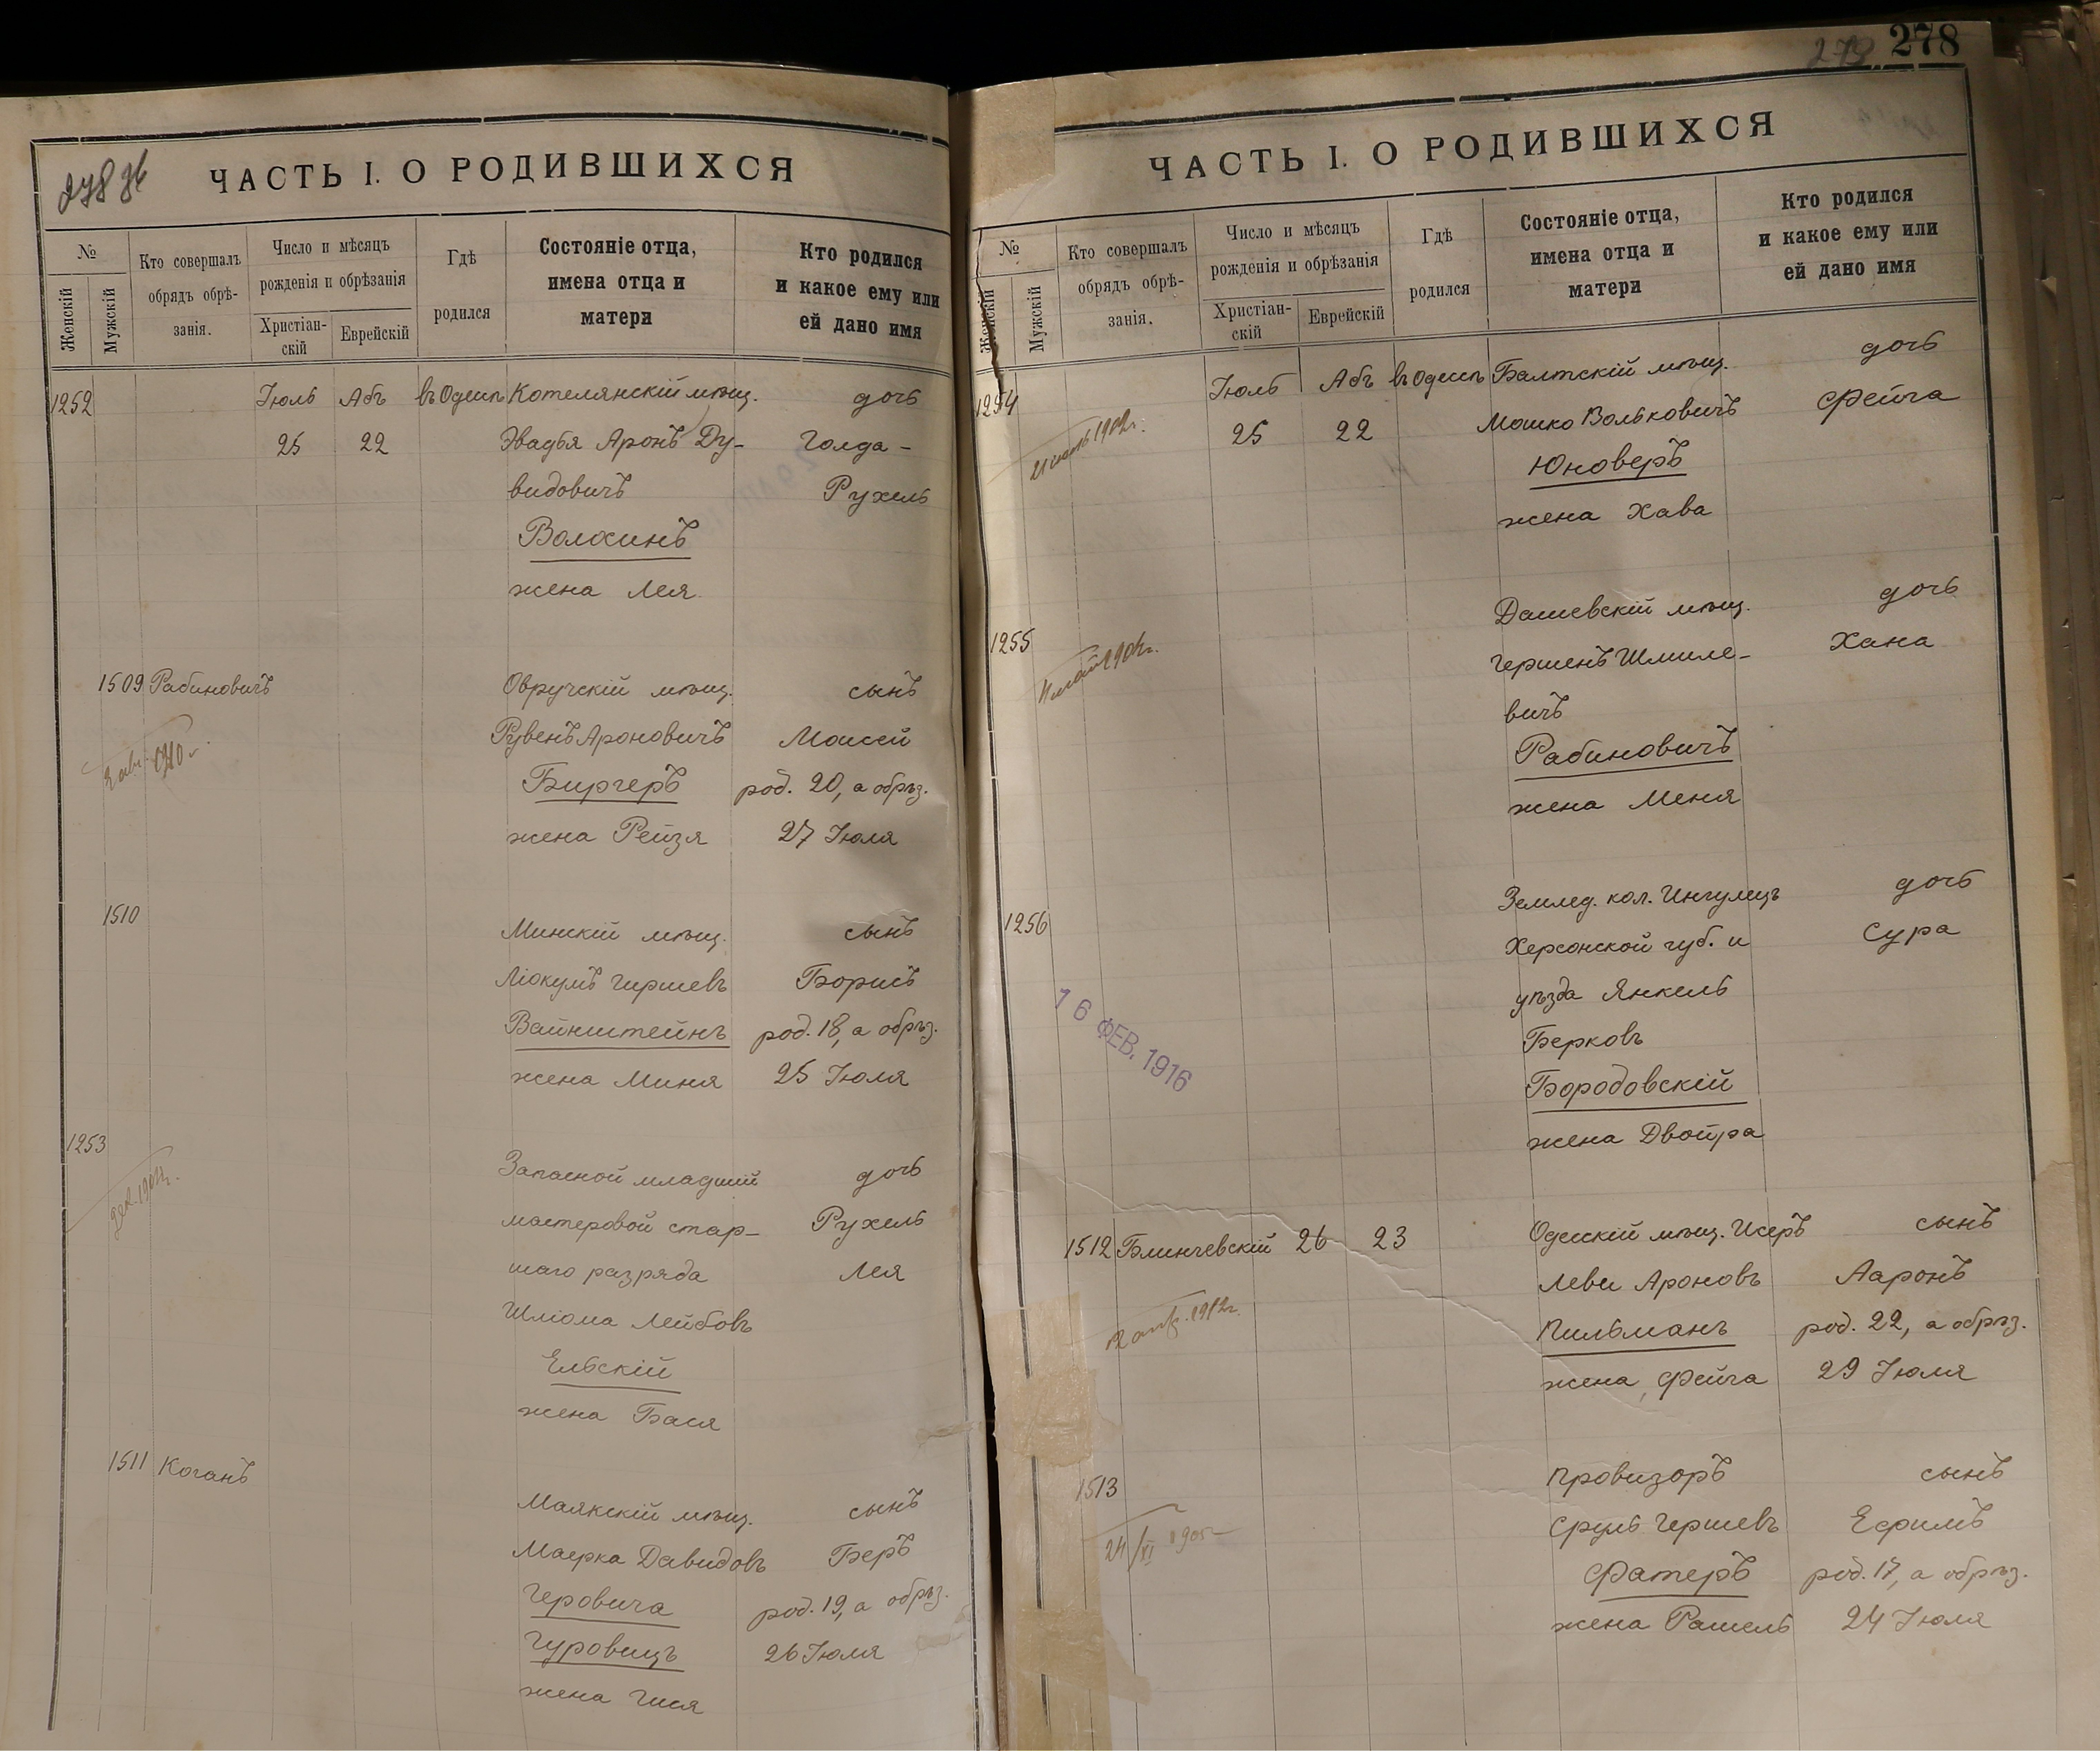 278
ЧАСТЬ I. О РОДИВШИХСЯ
№
Женскій
Мужскій
Кто совершалъ
обрядъ обрѣ-
занія.
Число и мѣсяцъ
рожденія и обрѣзанія
Христіан-
скій
Еврейскій
Гдѣ
родился
Состояніе отца,
имена отца и
матери
Кто родился
и какое ему или
ей дано имя
1252 Іюль Абъ въ Одессѣ Котелянскій мѣщ. дочь
25 22 Эвадья Аронъ Ду- Голда-
видовичъ Рухель
Волохинъ
жена Лея
1509 Рабиновичъ Овручскій мѣщ. сынъ
Рувенъ Ароновичъ Моисей
1910 г.
Биргеръ род. 20, а обрѣз.
жена Рейзя 27 Іюля
1510 Минскій мѣщ. сынъ
Гиршевъ Борисъ
Вайнштейнъ род. 18, а обрѣз.
жена Миня 25 Іюля
1253 Запасной младшій дочь
мастеровой стар- Рухель
шаго разряда Лея
Шліома Лейбовъ
Ельскій
жена Бася
1511 Коганъ
Маякскій мѣщ. сынъ
Маерка Давидовъ Беръ
Геровича род. 19, а обрѣз.
Гуровицъ 26 Іюля
жена Гися
278
ЧАСТЬ I. О РОДИВШИХСЯ
№
Женскій
Мужскій
Кто совершалъ
обрядъ обрѣ-
занія.
Число и мѣсяцъ
рожденія и обрѣзанія
Христіан-
скій
Еврейскій
Гдѣ
родился
Состояніе отца,
имена отца и
матери
Кто родился
и какое ему или
ей дано имя
1254 Іюль Абъ въ Одессѣ Балтскій мѣщ. дочь
25 22 Мошко Вольковичъ Фейга
Юноверъ
жена Хава
1255 Дашевскій мѣщ. дочь
Гершенъ Шмиле- Хана
вичъ
Рабиновичъ
жена Меня
1256 Землед. кол. Ингулецъ дочь
Херсонской губ. и Сура
уѣзда Янкель
Берковъ
16 ФЕВ. 1916
Бородовскій
жена Двойра
1512 Блинчевскій 26 23 Одесскій мѣщ. Исеръ сынъ
Леви Ароновъ Ааронъ
1912г.
Пильманъ род. 22, а обрѣз.
жена Фейга 29 Іюля
1513 Провизоръ сынъ
Сруль Гершевъ Ефимъ
24/XI 1905
Фатеръ род. 17, а обрѣз.
жена Рашель 24 Іюля